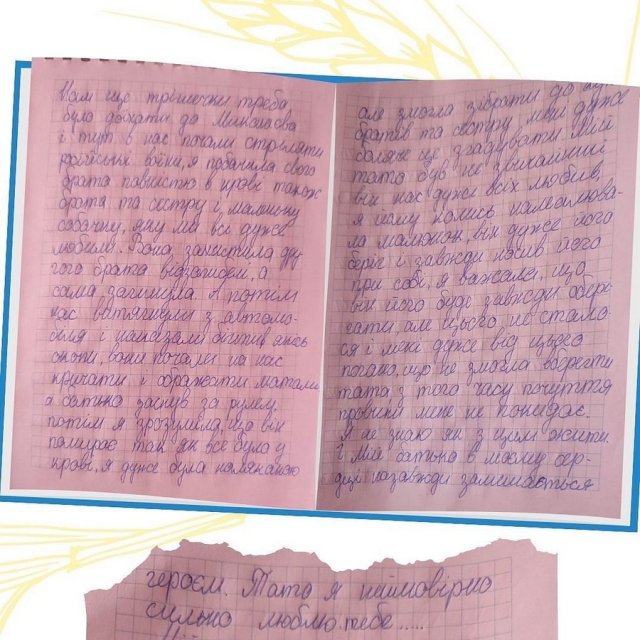 Нам ще трішечки треба
було доїхати до Миколаєва
і тут в нас почали стріляти
російські воїни, я побачила свого
брата повністю в крові також
брата та сестру і маленьку
собачку, яку ми всі дуже
любили. Вона захистила дру
гого брата від
сама загинула. А потім
нас витягнули з автомо-
біля і наказали бігти в якісь
окопи, вони почали на нас
кричати і ображати матами
а батько заснув за рулем.
потім я зрозуміла, що він
помирає так як все було у
крові, я дуже була налякана
але змогла зібрати до
братів та сестру, мені дуже
боляче це згадувати. Мій
тато був не звичайний
він нас дуже всіх любив,
я йому колись намалюва-
ла малюнок, він дуже його
беріг і завжди носив його
при собі, я вважала, що
він його буде завжди обері-
гати, але цього не стало-
ся і мені дуже від цього
погано, що не змогла вберегти
тата з того часу почуття
провини мене не покидає.
Я не знаю як з цим жити
і мій батько в моєму сер-
ці назавжди залишається
героєм. Тато я неймовірно
сильно люблю тебе.....